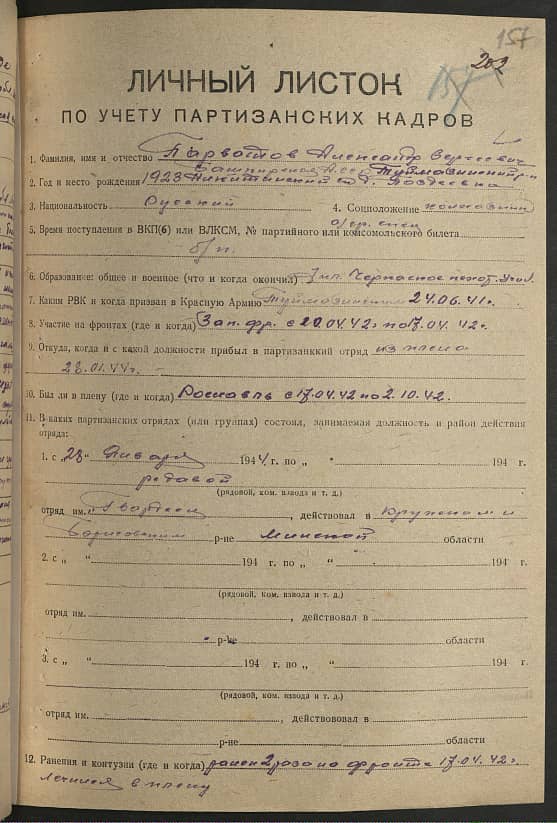 157
202
ЛИЧНЫЙ ЛИСТОК
ПО УЧЕТУ ПАРТИЗАНСКИХ КАДРОВ
1. Фамилия, имя и отчество Александр Сергеевич
Башкирская АССР Туймазинский р-н
2. Год и место рождения 1923
3. Национальность Русский 4. Соцположение
5. Время поступления в ВКП(б) или ВЛКСМ, № партийного или комсомольского билета
б/п.
6. Образование: общее и военное (что и когда окончил) 7 кл. пехот. учил.
7. Каким РВК и когда призван в Красную Армию Туймазинским 24.06.41г.
8. Участие на фронтах (где и когда) Зап. фр. с 20.04.42г по 17.04.42г.
9. Откуда, когда и с какой должности прибыл в партизанкий отряд из плена
28.01.44г.
10. Был ли в плену (где и когда) Рославль с 17.04.42 по 2.10.42.
11. В каких партизанских отрядах (или группах) состоял, занимаемая должность и район действия
отряда:
1. с „28“ Января 1944 г. по „ “ 194 г.
рядовой
(рядовой, ком. взвода и т. д.)
отряд им. , действовал в Крупском и
Борисовским р-не Минской области
2. с „ “ 194 г. по „ “ 194 г.
(рядовой, ком. взвода и т. д.)
отряд им. , действовал в
р-не области
3. с „ “ 194 г. по „ “ 194 г.
(рядовой, ком. взвода и т. д.)
отряд им. , действовал в
р-не области
12. Ранения и контузии (где и когда) ранен 2 раза на фронте 17.04.42г
лечился в плену